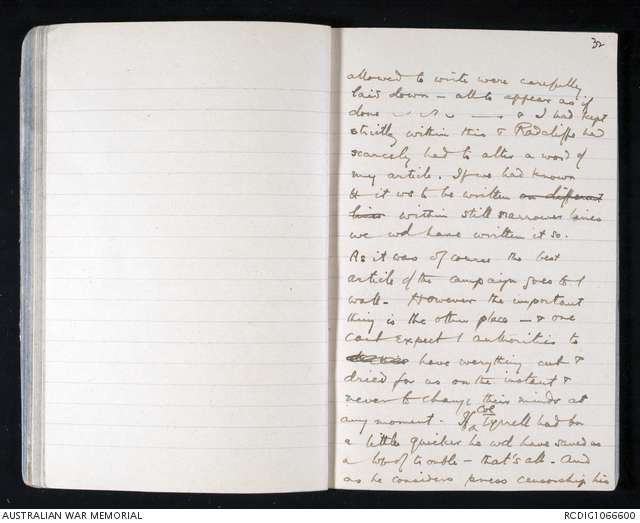 32
allowed to write were carefully
laid down — all to appear as if
done — & I had kept
strictly within this & Radcliffe had
scarcely had to alter a word of
my article. If we had known
tt it ws to be written on different
lines within still narrower lines
we wd have written it so.
As it was of course the best
article of the campaign goes to t
wall. However the important
thing is the other place — & one
cant expect t authorities to
have everything cut &
dried for us on the instant &
never to change their minds at
any moment. If Col Tyrrell had bn
a little quicker he wd have saved us
a lot of trouble — that's all. And
as he considers press censorship his
AUSTRALIAN WAR MEMORIAL
RCDIG1066600